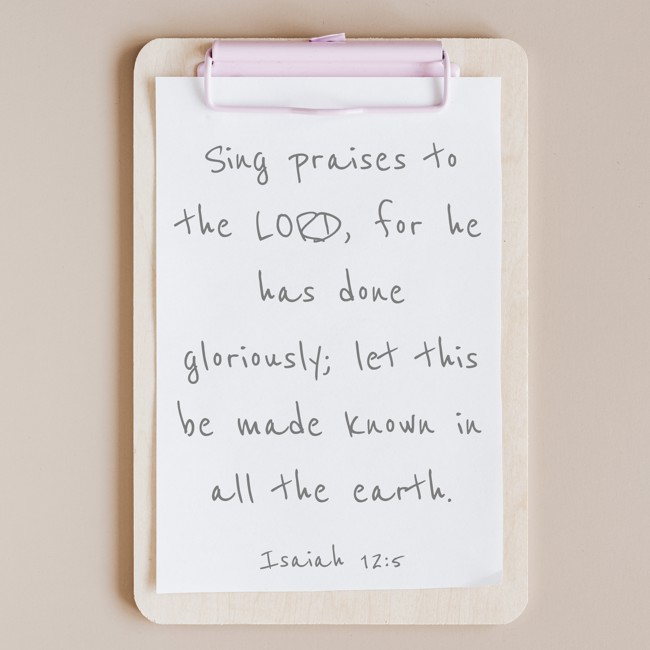 Sing praises to
the LORD, for he
has done
gloriously; let this
be made known in
all the earth.
Isaiah 12:5